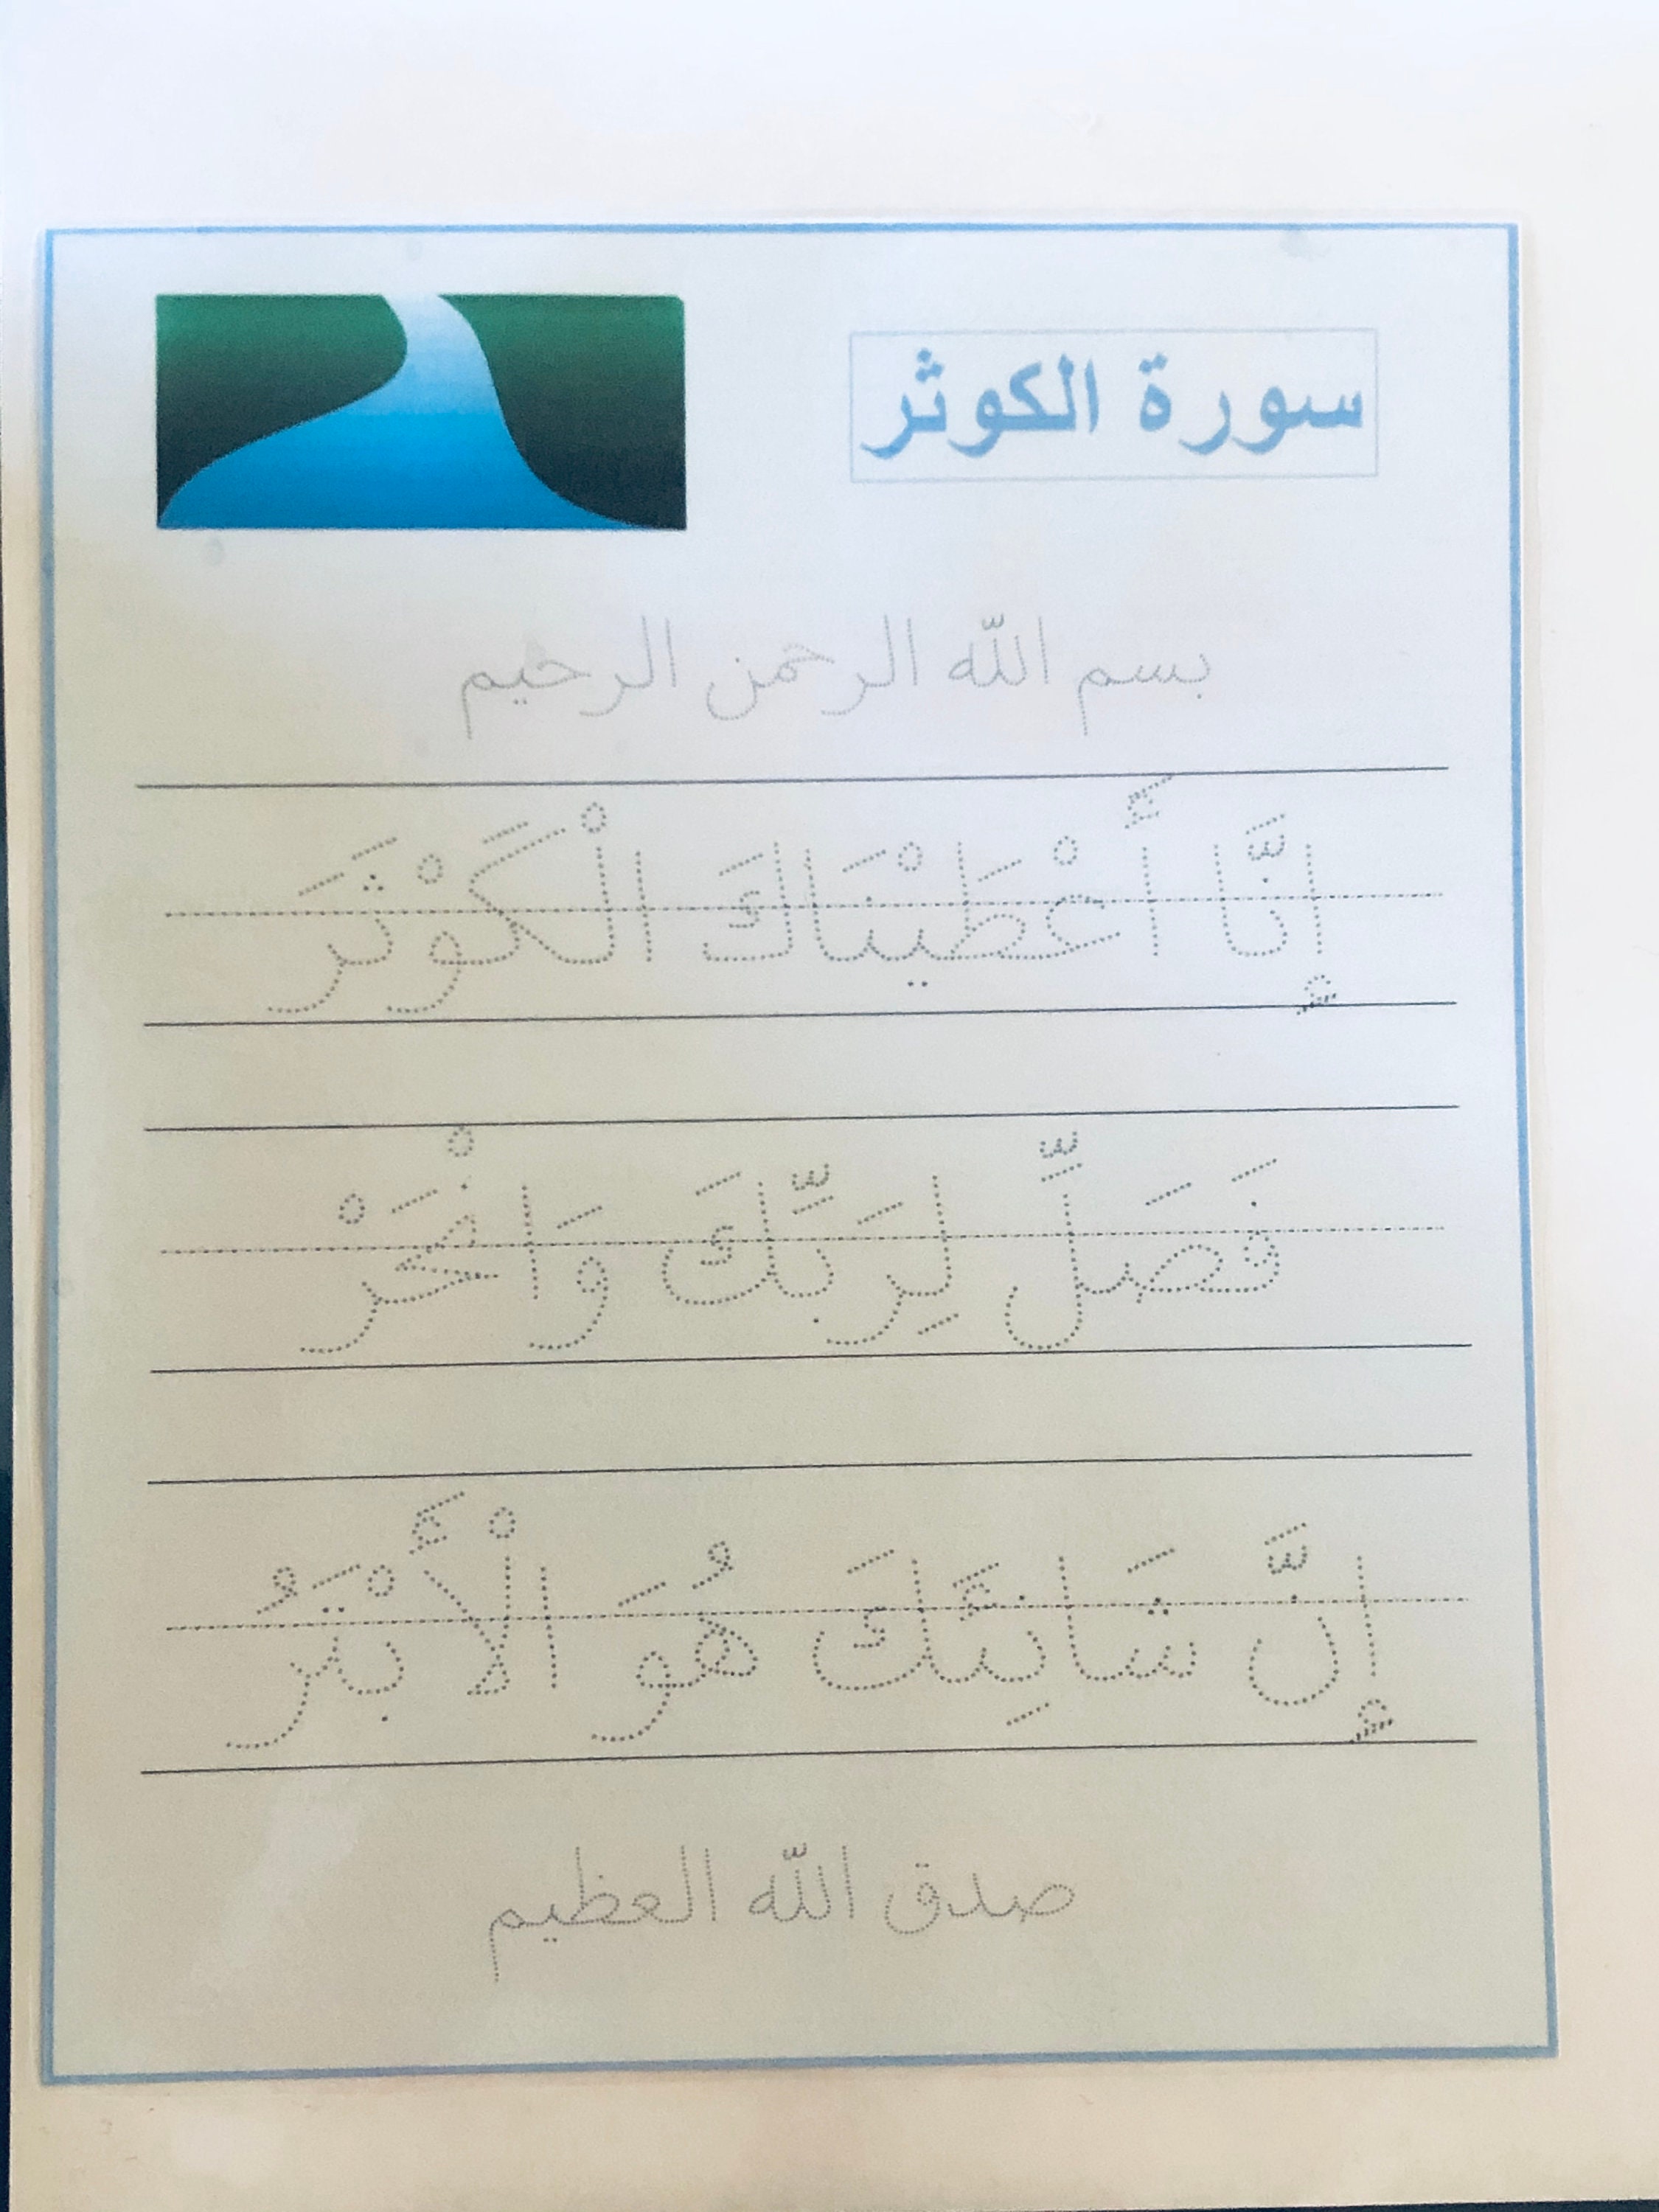 سورة الكوثر
بسم الله الرحمن الرحيم
إِنَّا أَعْطَيْنَاكَ الْكَوْثَرَ
فَصَلَّ لِرَبَّكَ وَانْحَرْ
إِنَّ شَانِئَكَ هُوَ الْأَبْتَرُ
صدق الله العظيم